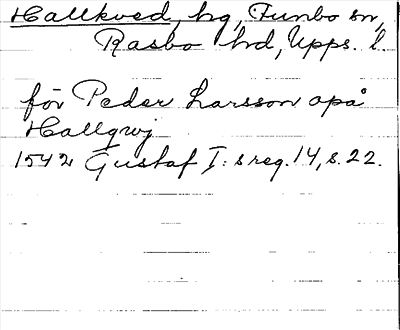 Hallkved, hg, Funbo sn,
Rasbo hd, Upps. l.
för Peder Larsson opå
Hallqwj
1542 Gustaf I: s reg. 14, s. 22.